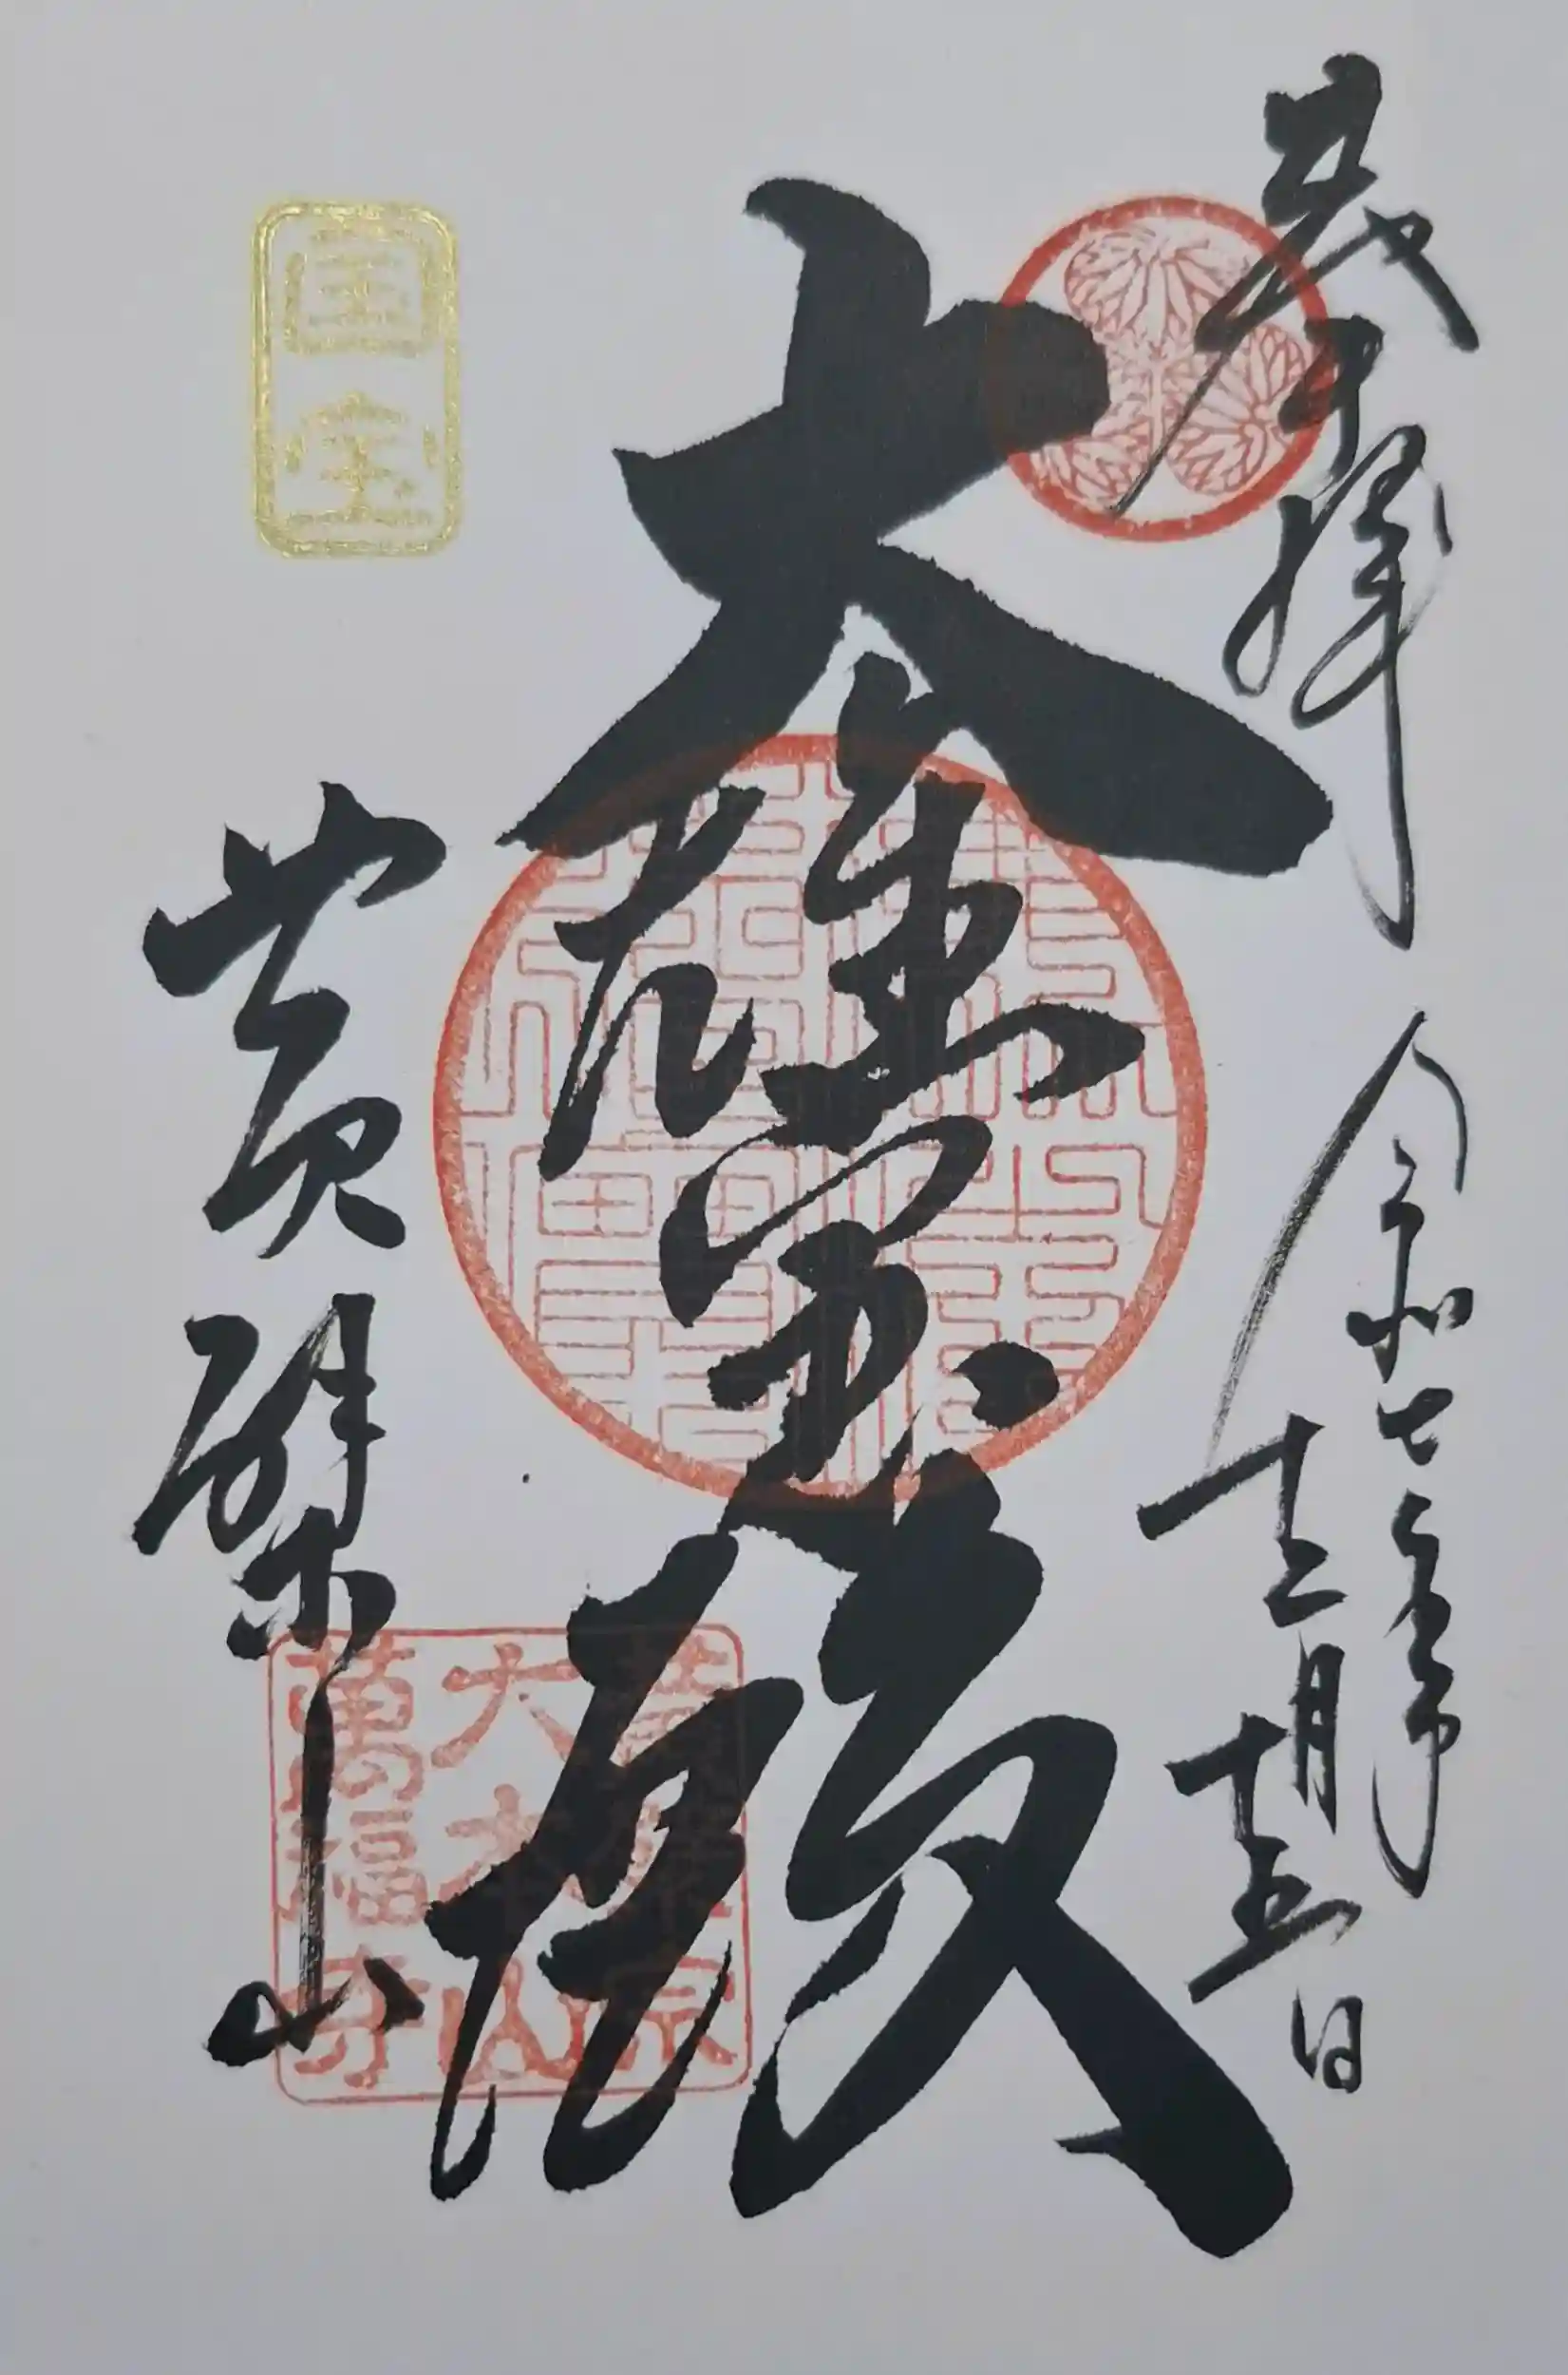 奉拝
令和七年
十二月
十五日
大雄宝殿
国宝
黄檗山
黄檗宗
大本山
萬福寺